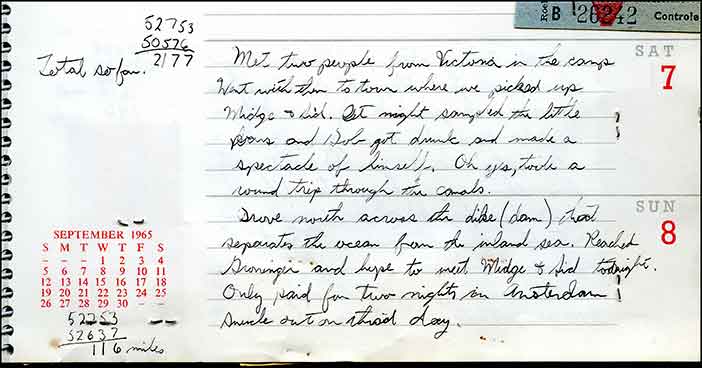 52753
50576
2177
Total so far.
B 26242 Controle
SAT
7
Met two people from Victoria in the camp
Went with them to town where we picked up
Midge & Sid. At night sampled the little
bars and Bob got drunk and made a
spectacle of himself. Oh yes, took a
round trip through the canals.
SUN
8
Drove north across the dike (dam) that
separates the ocean from the inland sea. Reached
Groningen and hope to meet Midge & Sid tonight.
Only paid for two nights in Amsterdam
snuck out on third day.
SEPTEMBER 1965
S M T W T F S
– – – 1 2 3 4
5 6 7 8 9 10 11
12 13 14 15 16 17 18
19 20 21 22 23 24 25
26 27 28 29 30 – –
52753
52637
116 miles